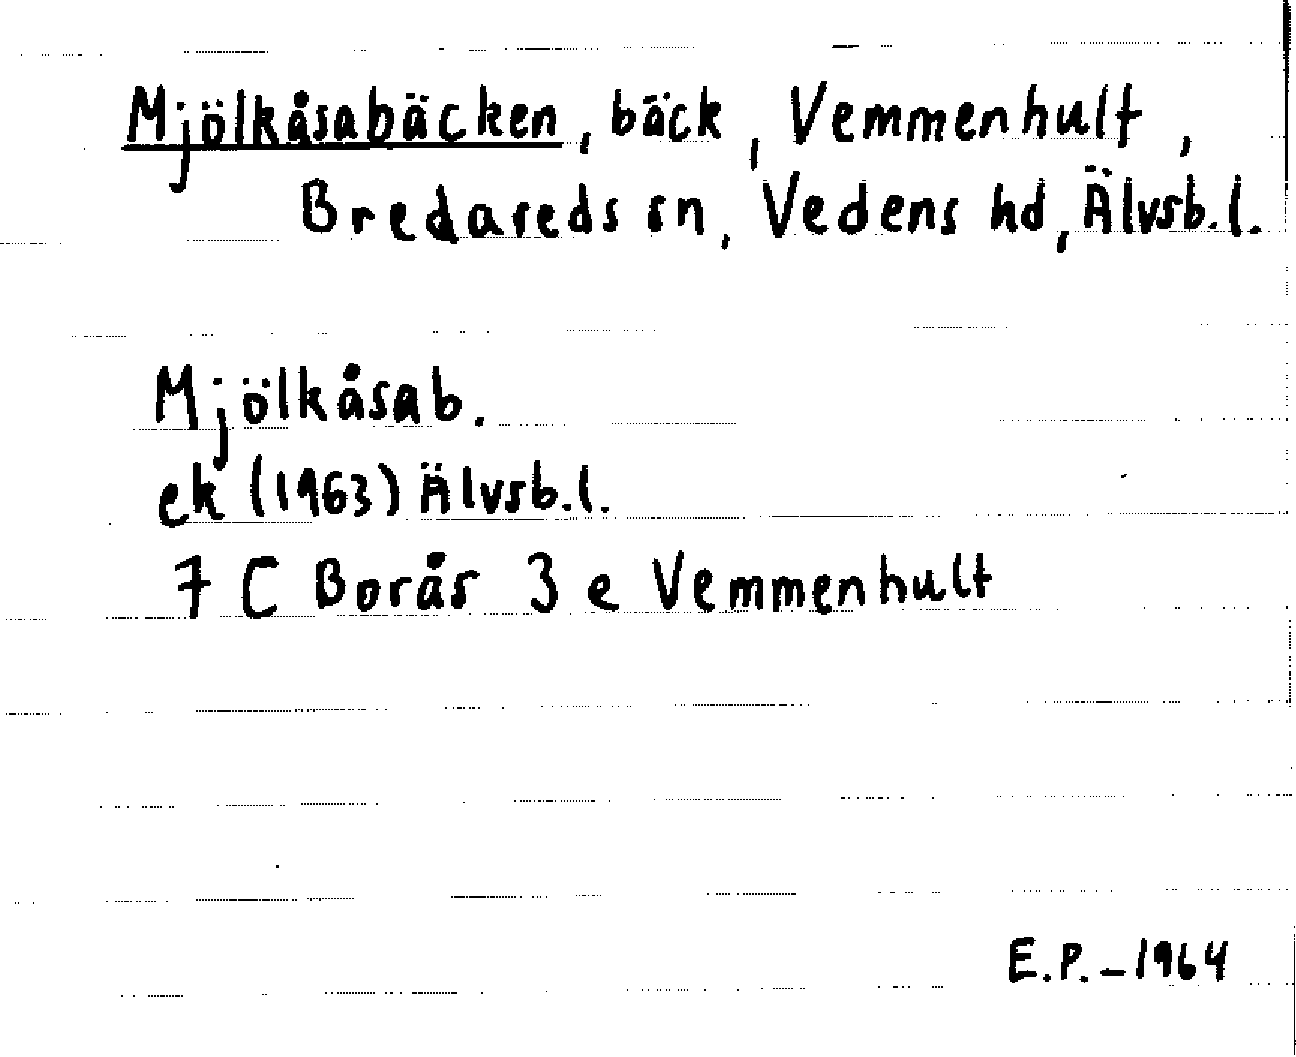 Mjölkåsabäcken, bäck, Vemmenhult,
Bredareds sn, Vedens hd, Älvsb.l.
Mjölkåsab.
ek (1963) Älvsb.l.
7 C Borås 3 e Vemmenhult
E.P.-1964